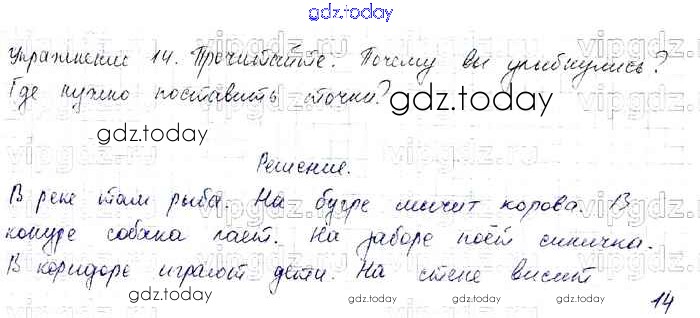 gdz.today
Упражнение 14. Прочитайте. Почему вы улыбнулись?
Где нужно поставить точки?
gdz.today
gdz.today
Решение.
В реке там рыба. На бугре мычит корова. В
конуре собака лает. На заборе поёт синичка.
В коридоре играют дети. На стене висит
gdz.today
gdz.today
14